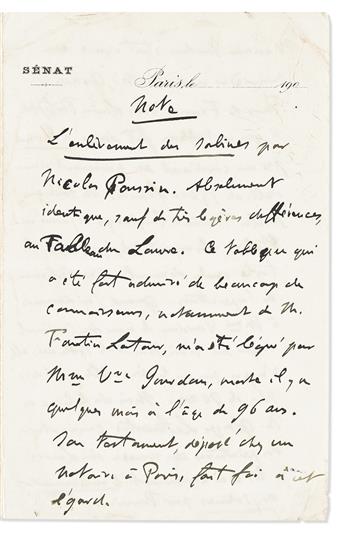 SÉNAT
Paris, le 190
Note
L'enlèvement des Sabines par
Nicolas Poussin. Absolument
identique, sauf de très légères différences,
au Tableau du Louvre. Ce tableau qui
a été fort admiré de beaucoup de
connaisseurs, notamment de M.
Fantin Latour, m'a été légué par
Mme Vve Jourdan, morte il y a
quelques mois à l'âge de 96 ans.
Son testament, déposé chez un
notaire à Paris, fait foi à cet
égard.